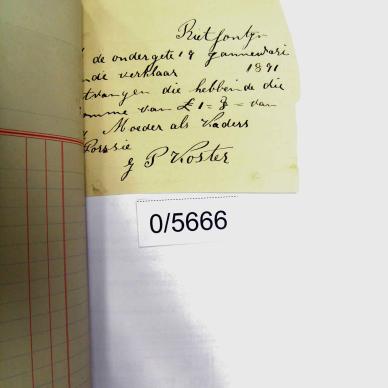 Rietfontyn
de ondergete 19 Jannewari
nde verklaar 1891
tvangen die hebbende die
omme van £ 1 = 3 = van
Moeder als Vaders
Porssie
J P Koster
0/5666